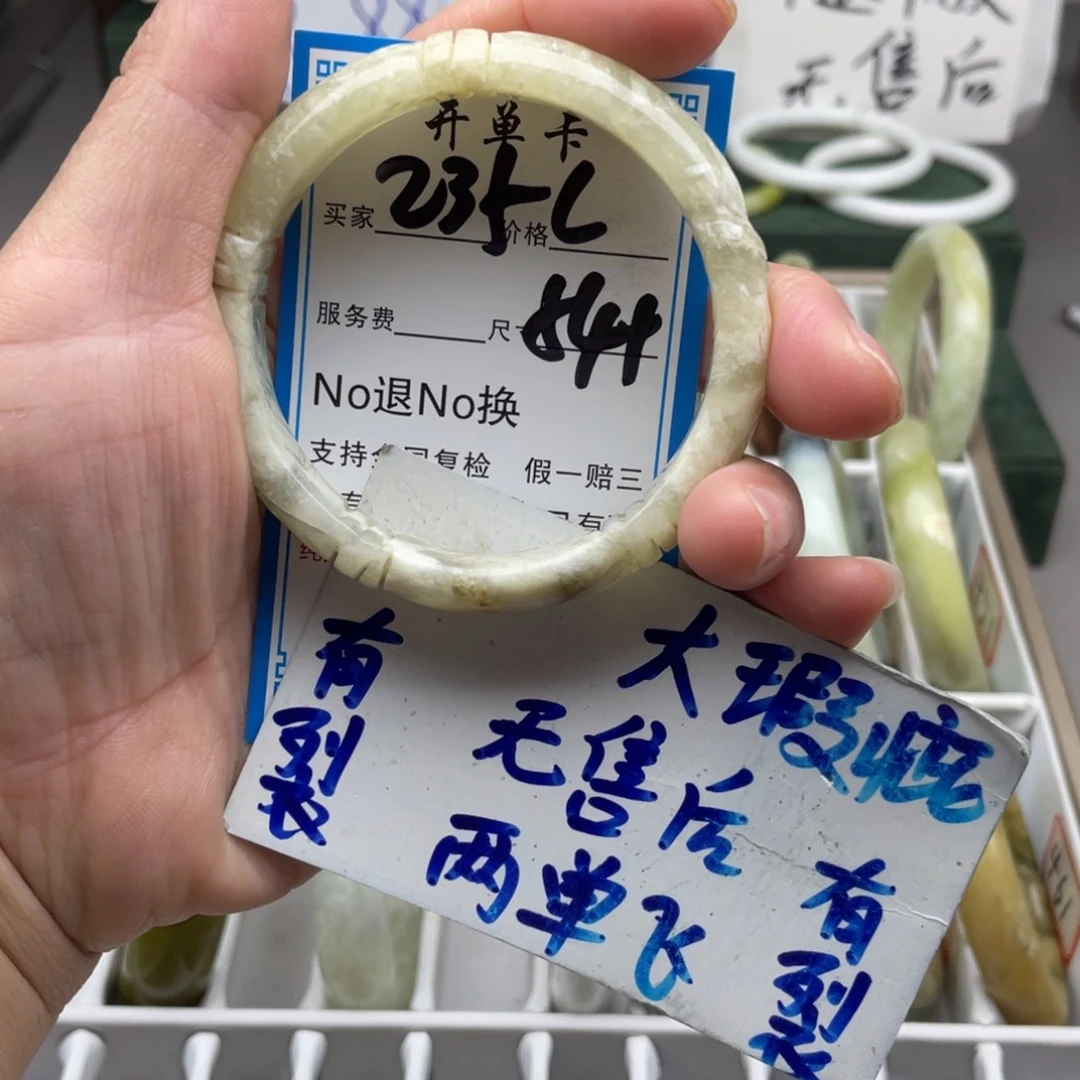 无售后
开单卡
买家 235 价格 L
服务费 尺 544
No退No换
支持 复检 假一赔三
有裂
大瑕疵
无售后
两单飞
有裂